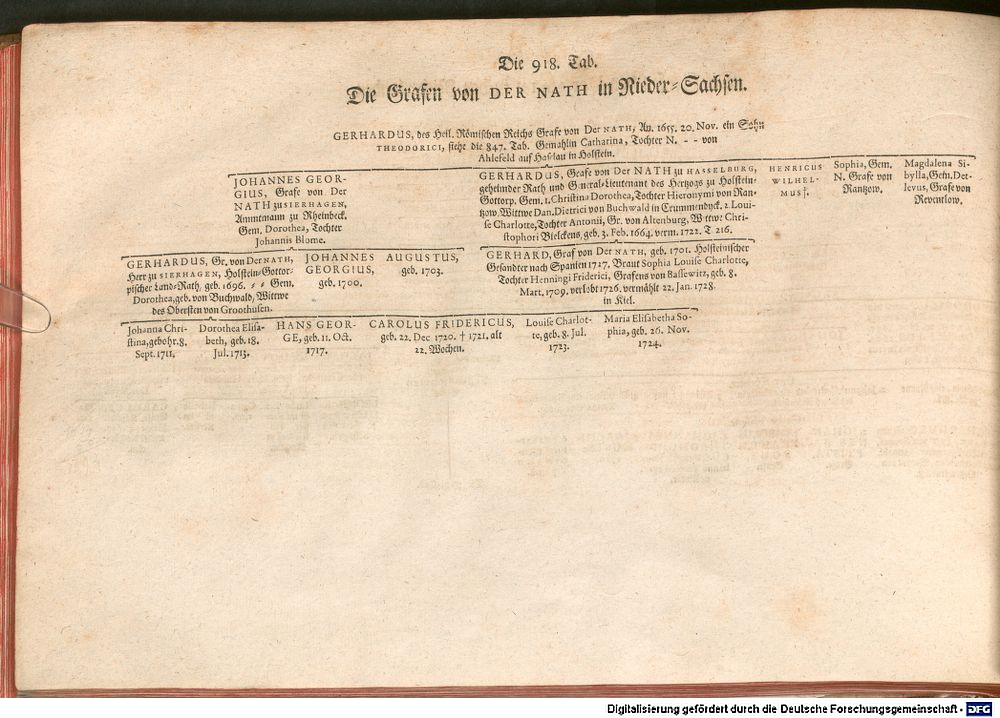 Die 918. Tab.
Die Grafen von DER NATH in Nieder-Sachsen.
GERHARDUS, des Heil. Römischen Reichs Grafe von Der NATH, An. 1655. 20. Nov. ein Sohn
THEODORICI, siehe die 847. Tab. Gemahlin Catharina, Tochter N. - - von
Ahlefeld auf Haselau in Holstein.
JOHANNES GEOR-
GIUS, Grafe von Der
NATH zu SIERHAGEN,
Ammtmann zu Rheinbeck.
Gem. Dorothea, Tochter
Johannis Blome.
GERHARDUS, Grafe von Der NATH zu HASSELBURG,
geheimder Rath und General-Lieutenant des Hertzogs zu Holstein-
Gottorp. Gem. 1. Christina Dorothea, Tochter Hieronymi von Ran-
tzow. Wittwe Dan. Dietrici von Buchwald in Crummendyck. 2. Loui-
se Charlotte, Tochter Antonii, Gr. von Altenburg, Wittwe Chri-
stophori Bielckens, geb. 3. Feb. 1664. verm. 1722. T. 216.
HENRICUS
WILHEL-
MUS†.
Sophia, Gem.
N. Grafe von
Rantzow.
Magdalena Si-
bylla, Gem. Det-
levus, Grafe von
Reventlow.
GERHARDUS, Gr. von Der NATH,
Herr zu SIERHAGEN, Holstein-Gottor-
pischer Land-Rath, geb. 1696. - - Gem.
Dorothea, geb. von Buchwald, Wittwe
des Obersten von Groothusen.
JOHANNES
GEORGIUS,
geb. 1700.
AUGUSTUS,
geb. 1703.
GERHARD, Graf von Der NATH, geb. 1701. Holsteinischer
Gesandter nach Spanien 1727. Braut Sophia Louise Charlotte,
Tochter Henningi Friderici, Grafens von Bassewitz, geb. 8.
Mart. 1709. verlobt 1726. vermählt 22. Jan. 1728.
in Kiel.
Johanna Chri-
stina, gebohr. 8.
Sept. 1711.
Dorothea Elisa-
beth, geb. 18.
Jul. 1713.
HANS GEOR-
GE, geb. 11. Oct.
1717.
CAROLUS FRIDERICUS,
geb. 22. Dec 1720. † 1721. alt
22. Wochen.
Louise Charlot-
te, geb. 8. Jul.
1723.
Maria Elisabetha So-
phia, geb. 26. Nov.
1724.
Digitalisierung gefördert durch die Deutsche Forschungsgemeinschaft - DFG